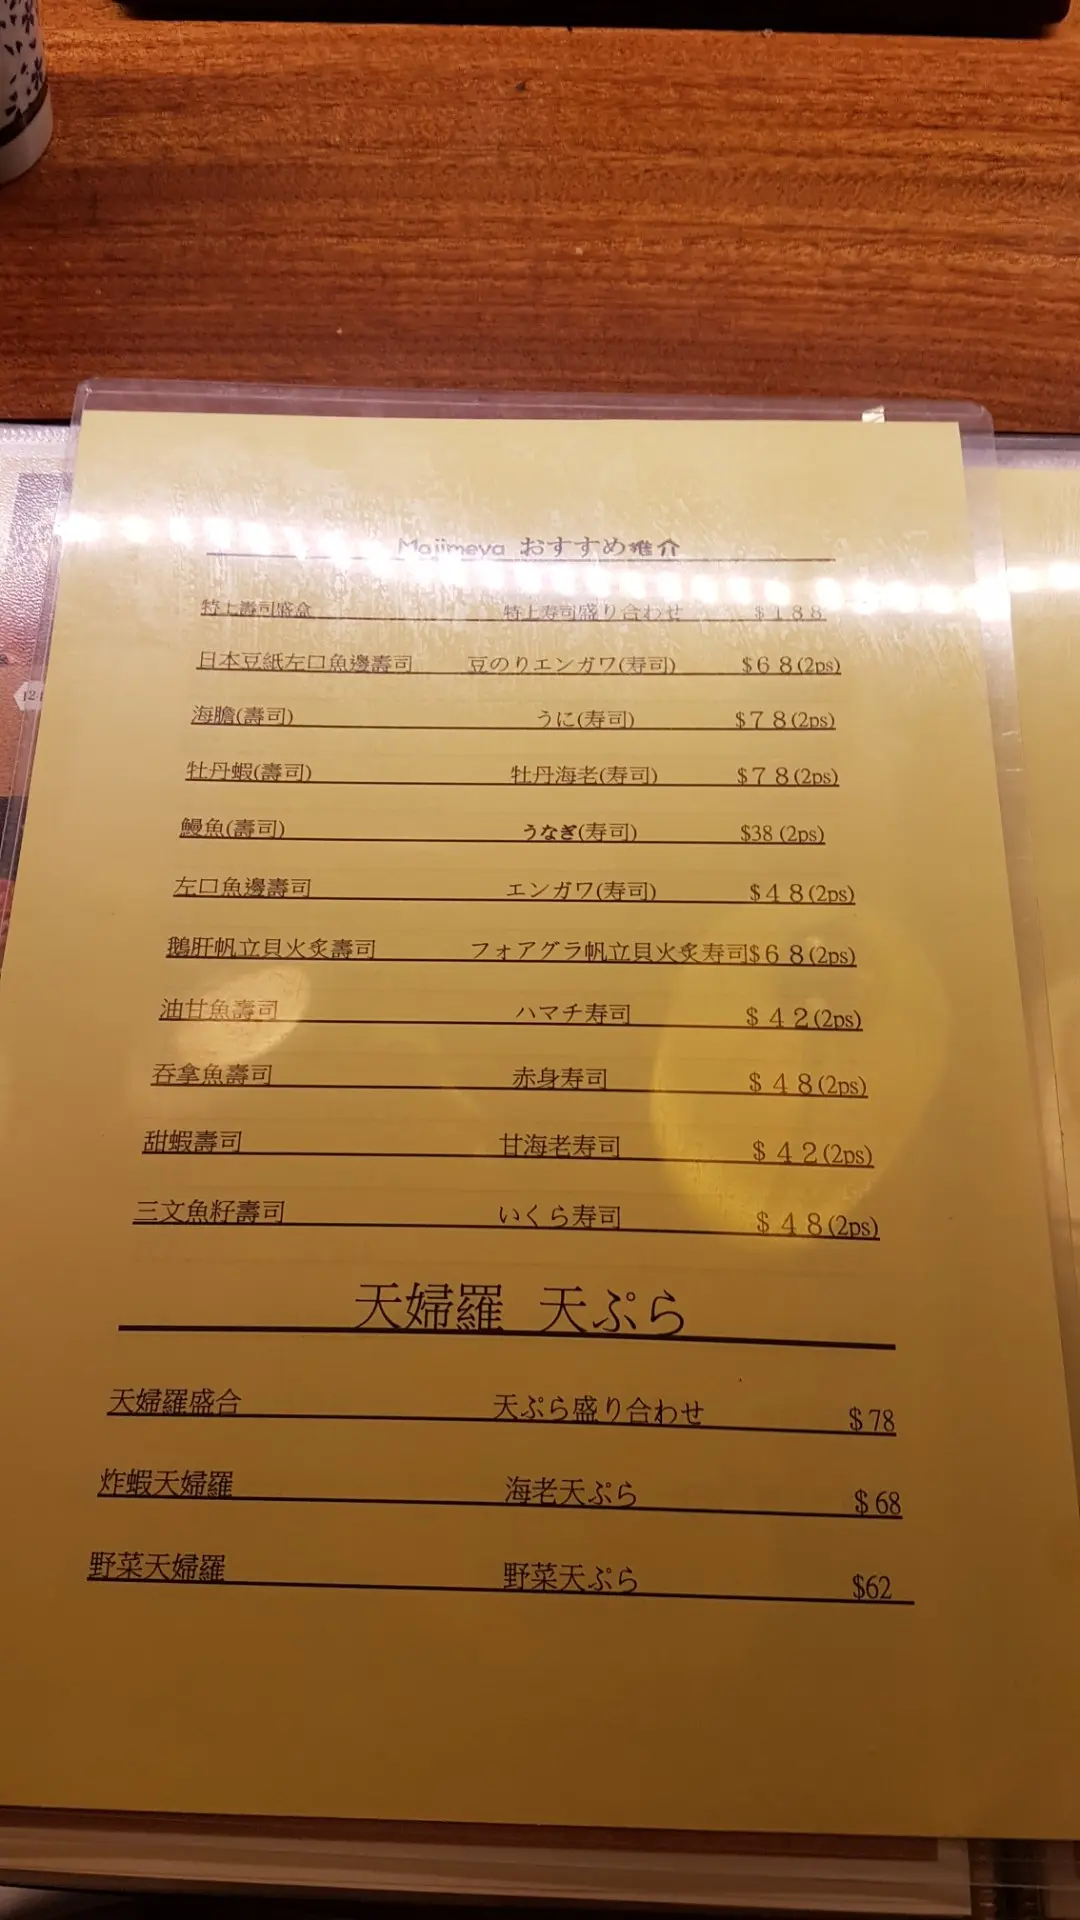 Majimeya おすすめ推介
特上壽司盛盒 特上寿司盛り合わせ $188
日本豆紙左口魚邊壽司 豆のりエンガワ(寿司) $68(2ps)
海膽(壽司) うに(寿司) $78(2ps)
牡丹蝦(壽司) 牡丹海老(寿司) $78(2ps)
鰻魚(壽司) うなぎ(寿司) $38 (2ps)
左口魚邊壽司 エンガワ(寿司) $48(2ps)
鵝肝帆立貝火炙壽司 フォアグラ帆立貝火炙寿司$68(2ps)
油甘魚壽司 ハマチ寿司 $42(2ps)
吞拿魚壽司 赤身寿司 $48(2ps)
甜蝦壽司 甘海老寿司 $42(2ps)
三文魚籽壽司 いくら寿司 $48(2ps)
天婦羅 天ぷら
天婦羅盛合 天ぷら盛り合わせ $78
炸蝦天婦羅 海老天ぷら $68
野菜天婦羅 野菜天ぷら $62